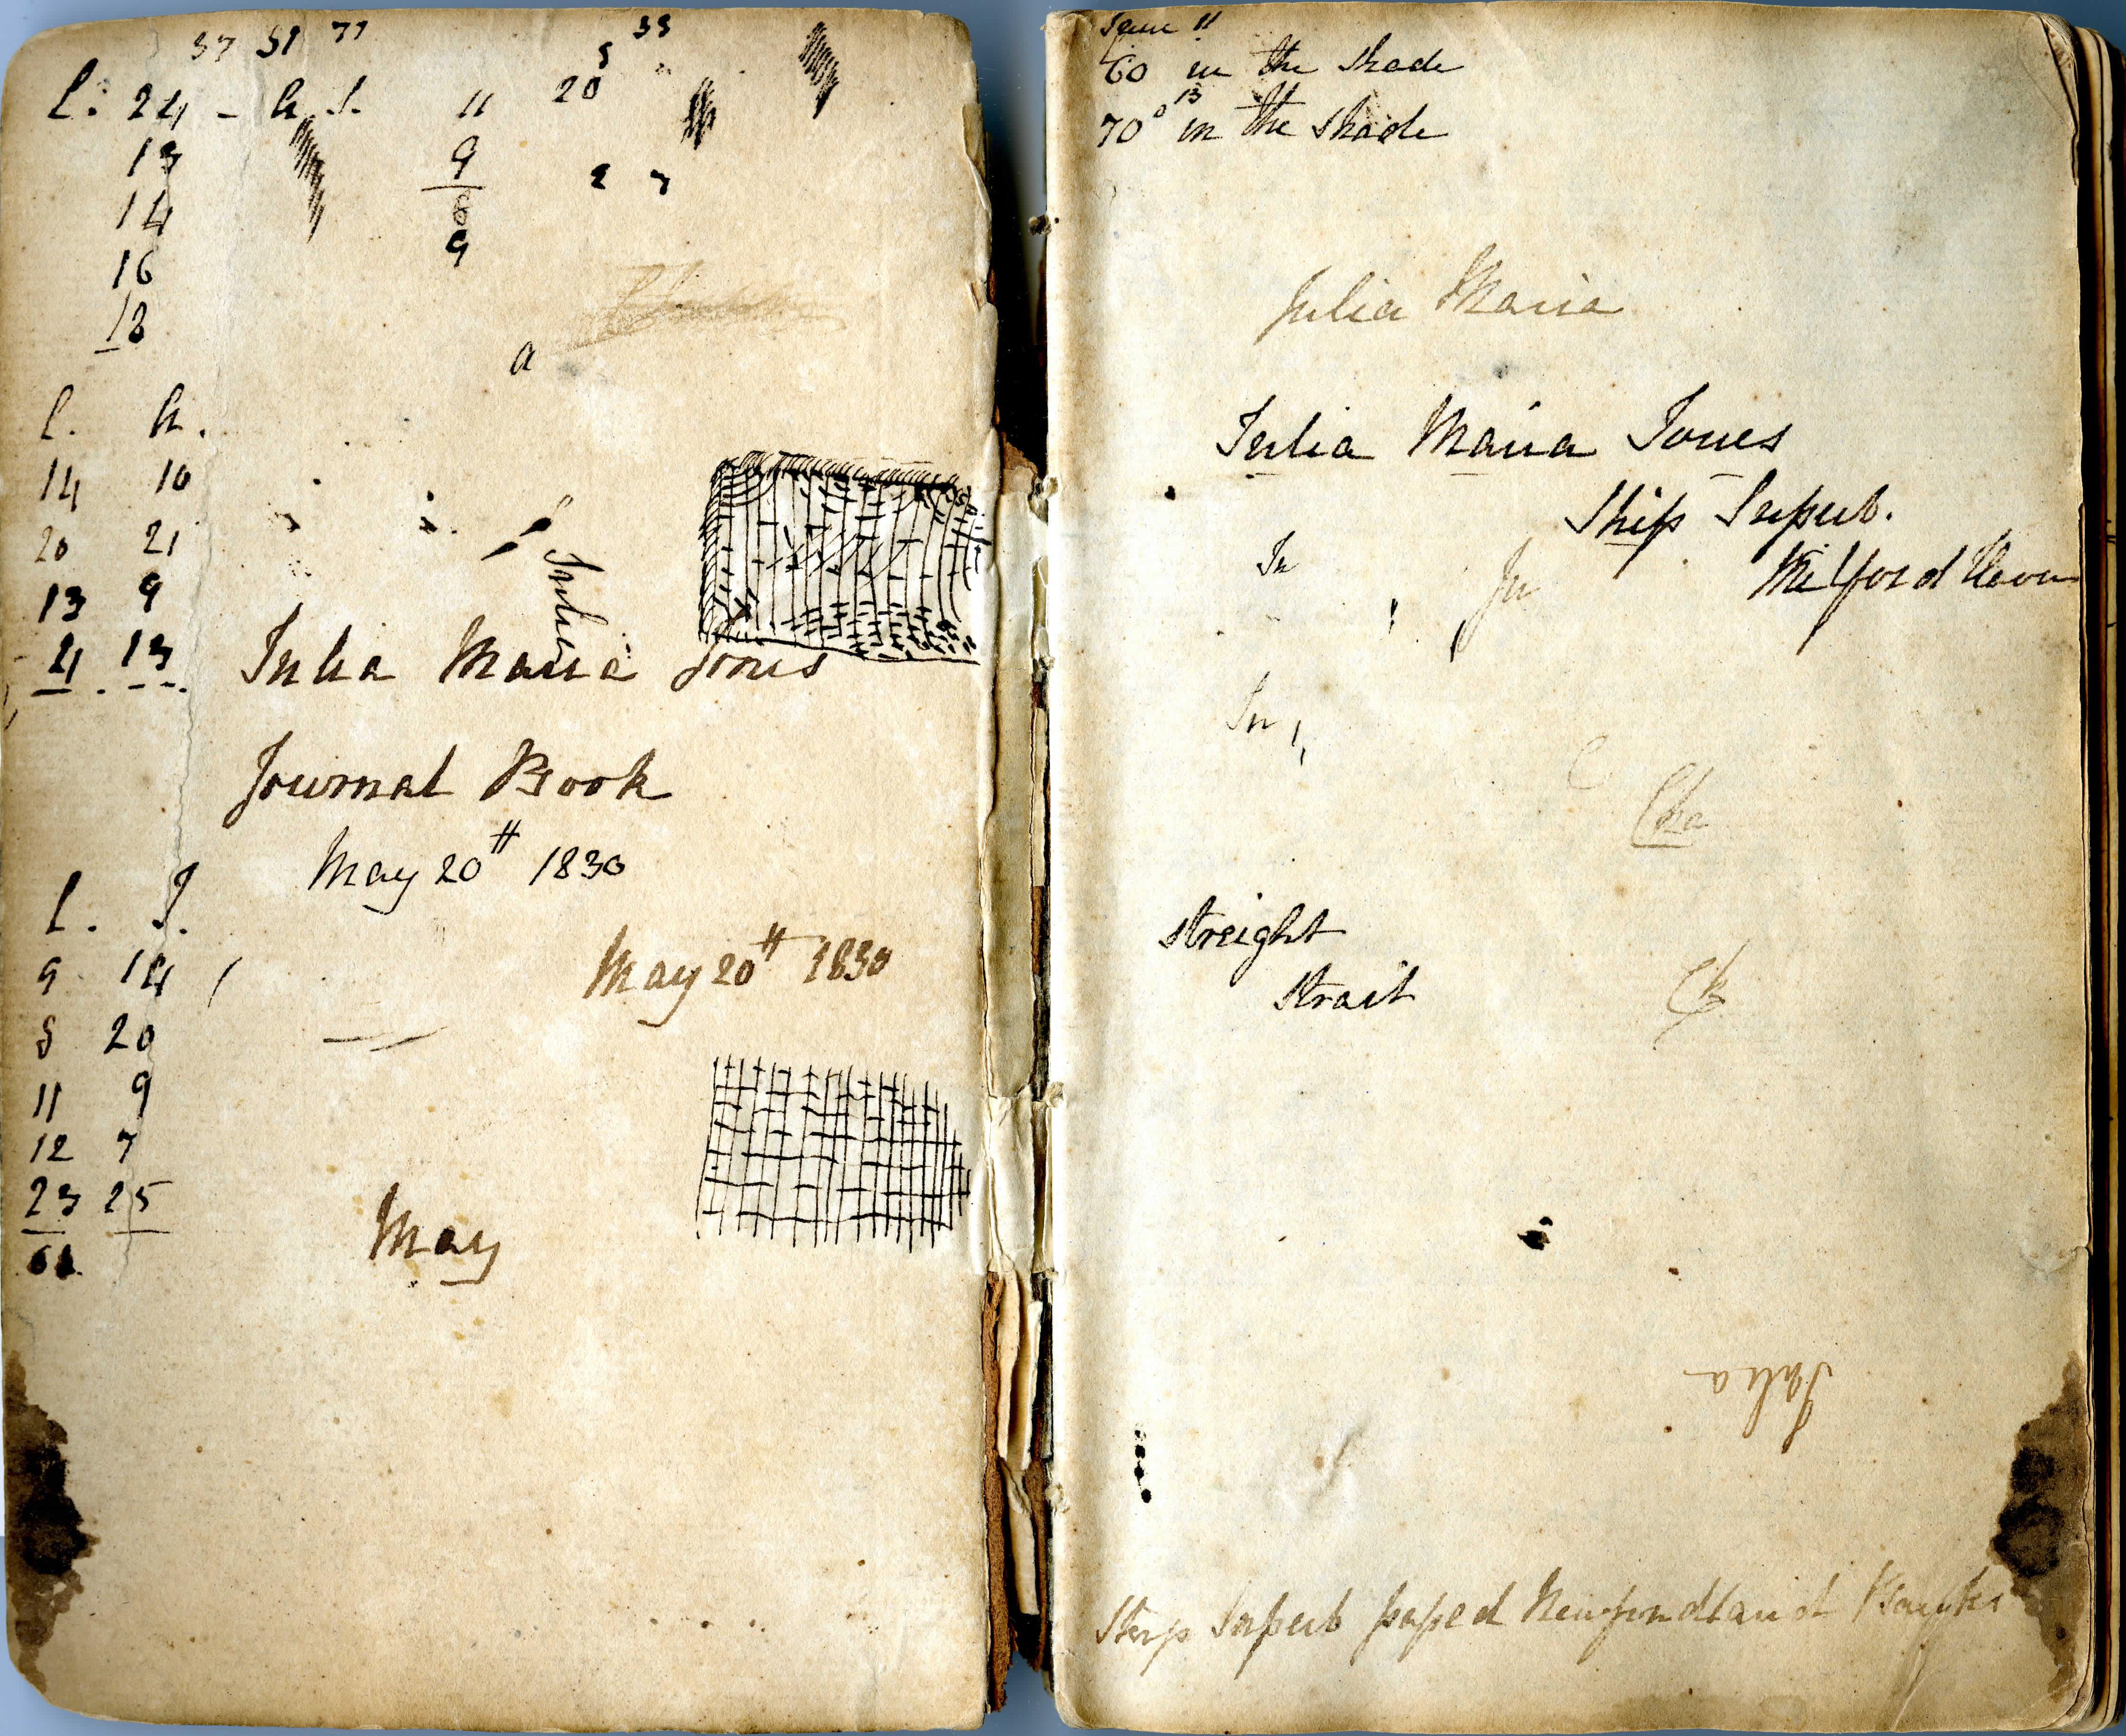 37 51 77 33
5
L. 24 - h. J. 11 20
13 9
14 8
16 9
18
a
L. h.
14 10
20 21
13 9
4 13
Julia
Julia Maria Jones
Journal Book
May 20th 1830
L. J.
9 14
May 20th 1830
8 20
11 9
12 7
23 25
May
June 11
60 in the shade
13
70° in the shade
Julia Maria
Julia Maria Jones
Ship Superb.
Milford Haven
Ju Ju
Ju
Cha
streight
strait
Ch
Julia
Ship Superb passed Newfondland Banks